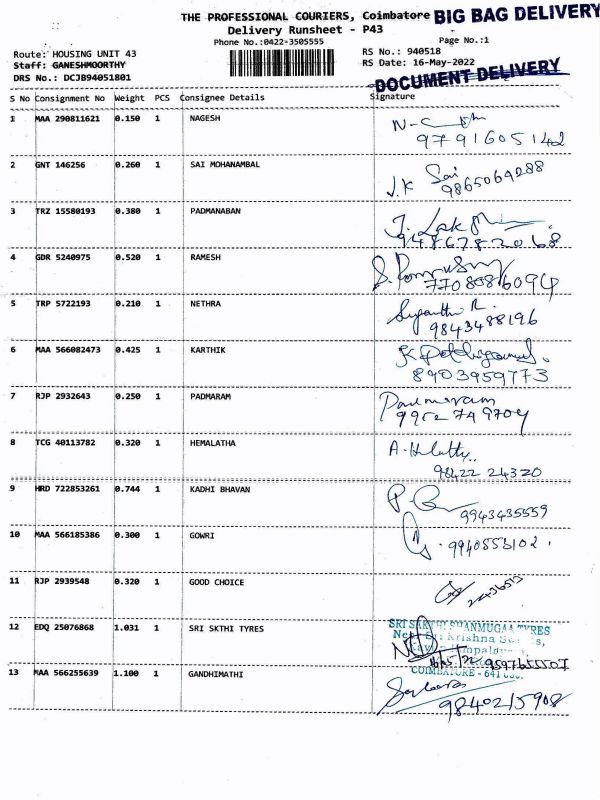 THE PROFESSIONAL COURIERS, Coimbatore BIG BAG DELIVERY
Delivery Runsheet - P43
Phone No.:0422-3505555
Page No.:1
Route: HOUSING UNIT 43
RS No.: 940518
Staff: GANESHMOORTHY
RS Date: 16-May-2022
DRS No.: DCJB94051801
DOCUMENT DELIVERY
S No Consignment No Weight PCS Consignee Details Signature
1 MAA 290811621 0.150 1 NAGESH
9791605142
2 GNT 146256 0.260 1 SAI MOHANAMBAL
J.K Sai
9865069288
3 TRZ 15580193 0.380 1 PADMANABAN
9486782068
4 GDR 5240975 0.520 1 RAMESH
5 TRP 5722193 0.210 1 NETHRA
9843488196
6 MAA 566082473 0.425 1 KARTHIK
8903959773
7 RJP 2932643 0.250 1 PADMARAM
Padmaram
8 TCG 40113782 0.320 1 HEMALATHA
98422 24320
9 HRD 722853261 0.744 1 KADHI BHAVAN
9943435559
10 MAA 566185386 0.300 1 GOWRI
9940553102.
11 RJP 2939548 0.320 1 GOOD CHOICE
12 EDQ 25076868 1.031 1 SRI SKTHI TYRES
SRI SAKTHI SHANMUGAA TYRES
Krishna
COIMBATORE - 641
13 MAA 566255639 1.100 1 GANDHIMATHI
9840215908